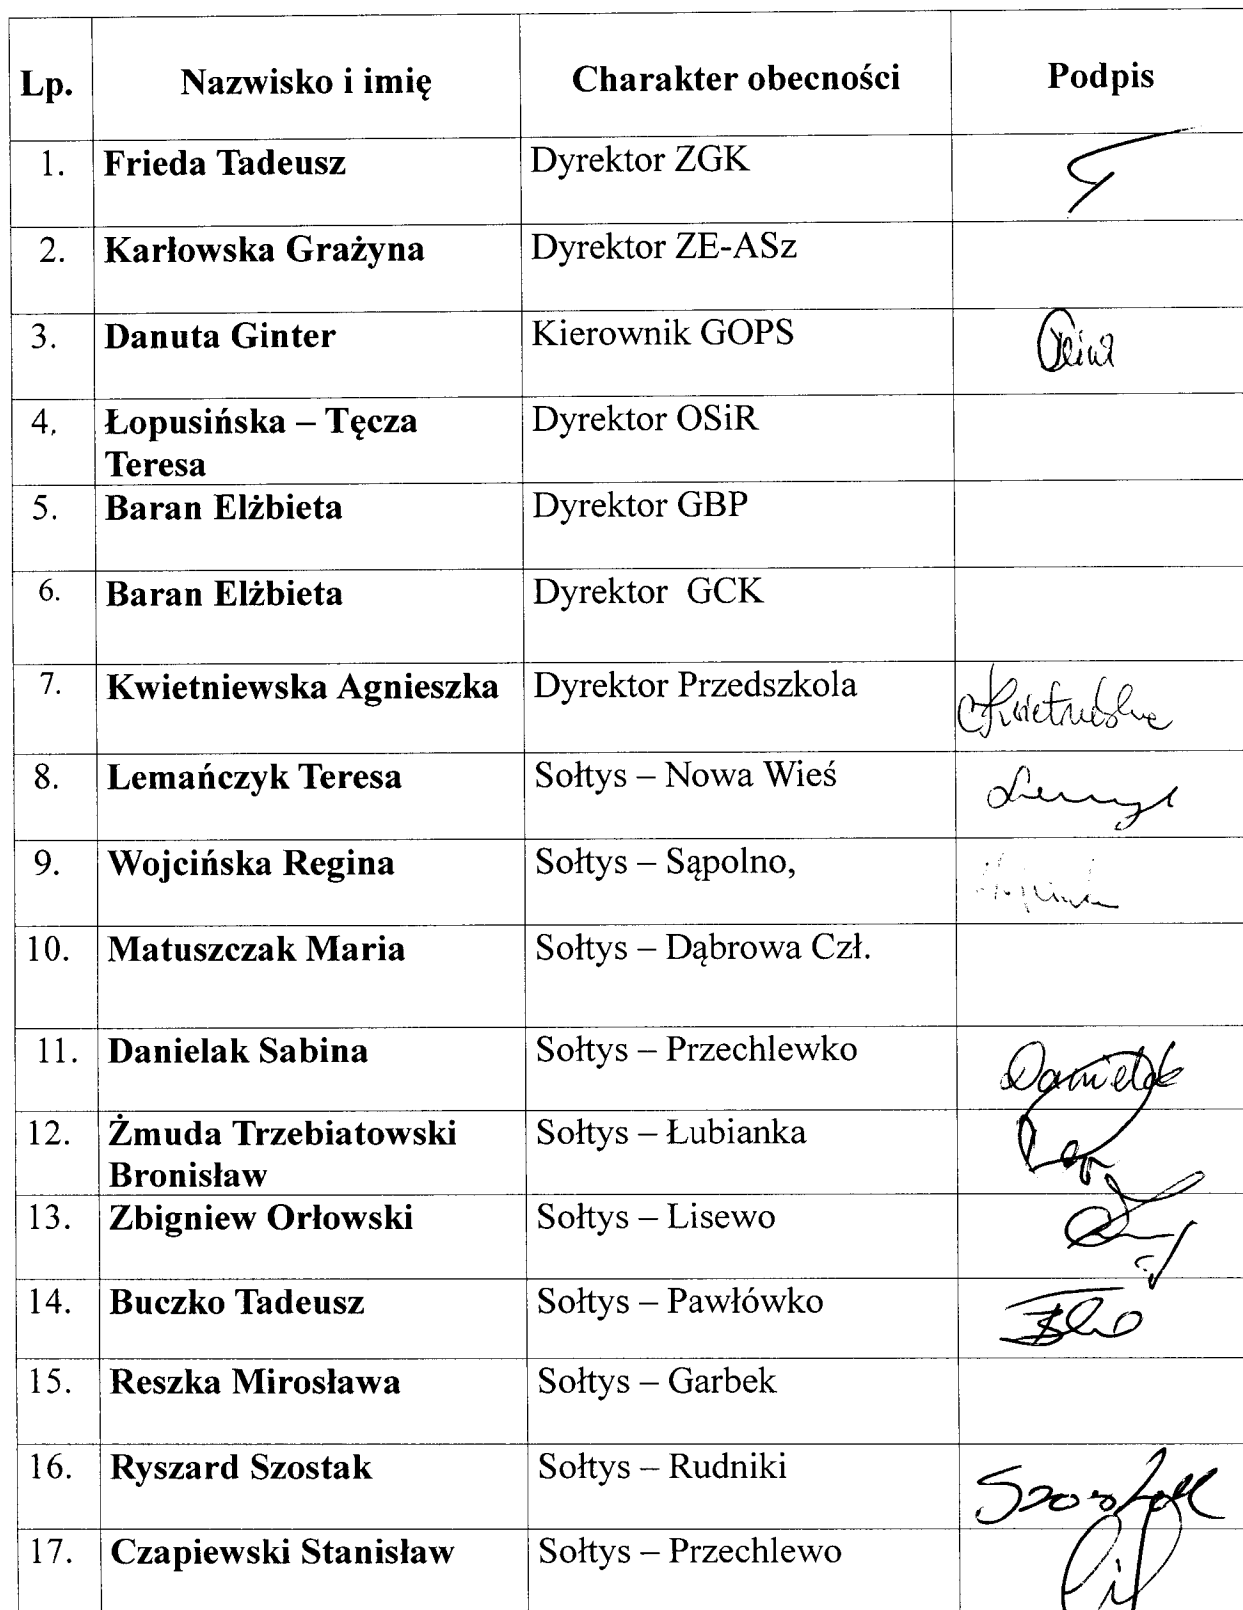 Lp. Nazwisko i imię Charakter obecności Podpis
1. Frieda Tadeusz Dyrektor ZGK
2. Karłowska Grażyna Dyrektor ZE-ASz
3. Danuta Ginter Kierownik GOPS
4. Łopusińska – Tęcza Dyrektor OSiR
Teresa
5. Baran Elżbieta Dyrektor GBP
6. Baran Elżbieta Dyrektor GCK
7. Kwietniewska Agnieszka Dyrektor Przedszkola
8. Lemańczyk Teresa Sołtys – Nowa Wieś
9. Wojcińska Regina Sołtys – Sąpolno,
10. Matuszczak Maria Sołtys – Dąbrowa Czł.
11. Danielak Sabina Sołtys – Przechlewko Danielak
12. Żmuda Trzebiatowski Sołtys – Łubianka
Bronisław
13. Zbigniew Orłowski Sołtys – Lisewo
14. Buczko Tadeusz Sołtys – Pawłówko
15. Reszka Mirosława Sołtys – Garbek
16. Ryszard Szostak Sołtys – Rudniki Szostak
17. Czapiewski Stanisław Sołtys – Przechlewo